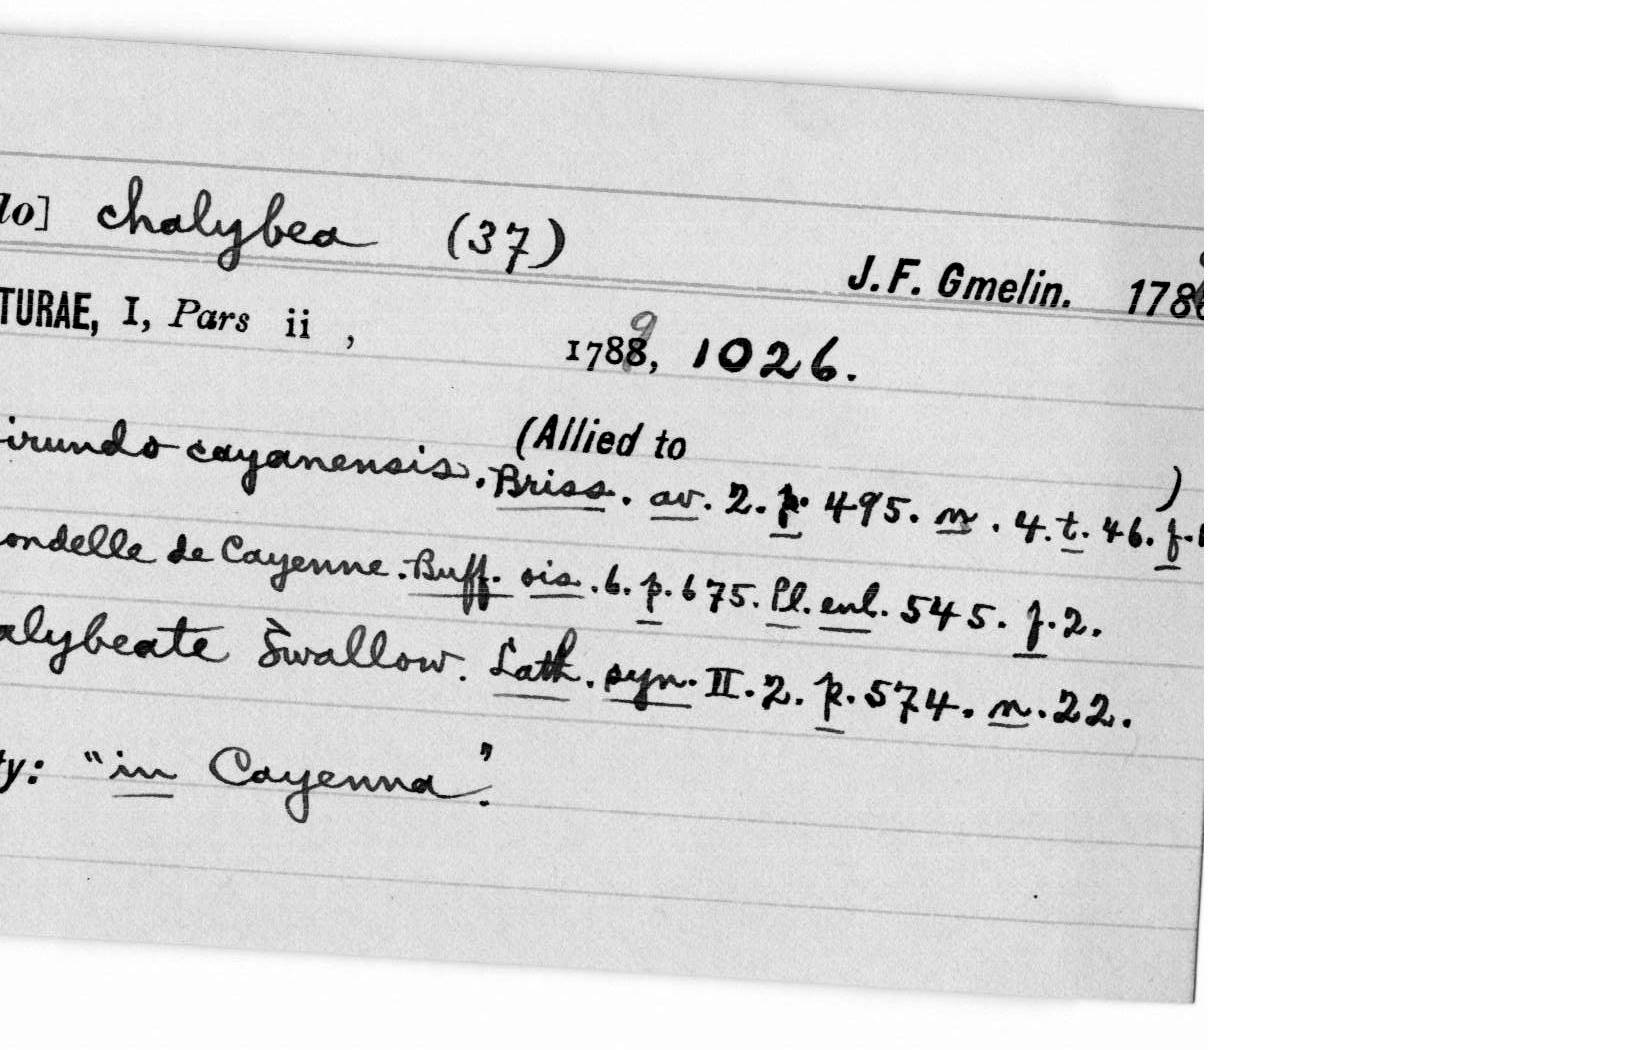 lo] chalybea (37)
J.F. Gmelin. 178
TURAE, I, Pars ii , 1789, 1026.
(Allied to )
irundo cayanensis. Briss. av. 2. p. 495. n. 4. t. 46. f. 1
ondelle de Cayenne. Buff. ois. 6. p. 675. Pl. enl. 545. f. 2.
alybeate Swallow. Lath. syn. II. 2. p. 574. n. 22.
ty: "in Cayenna".